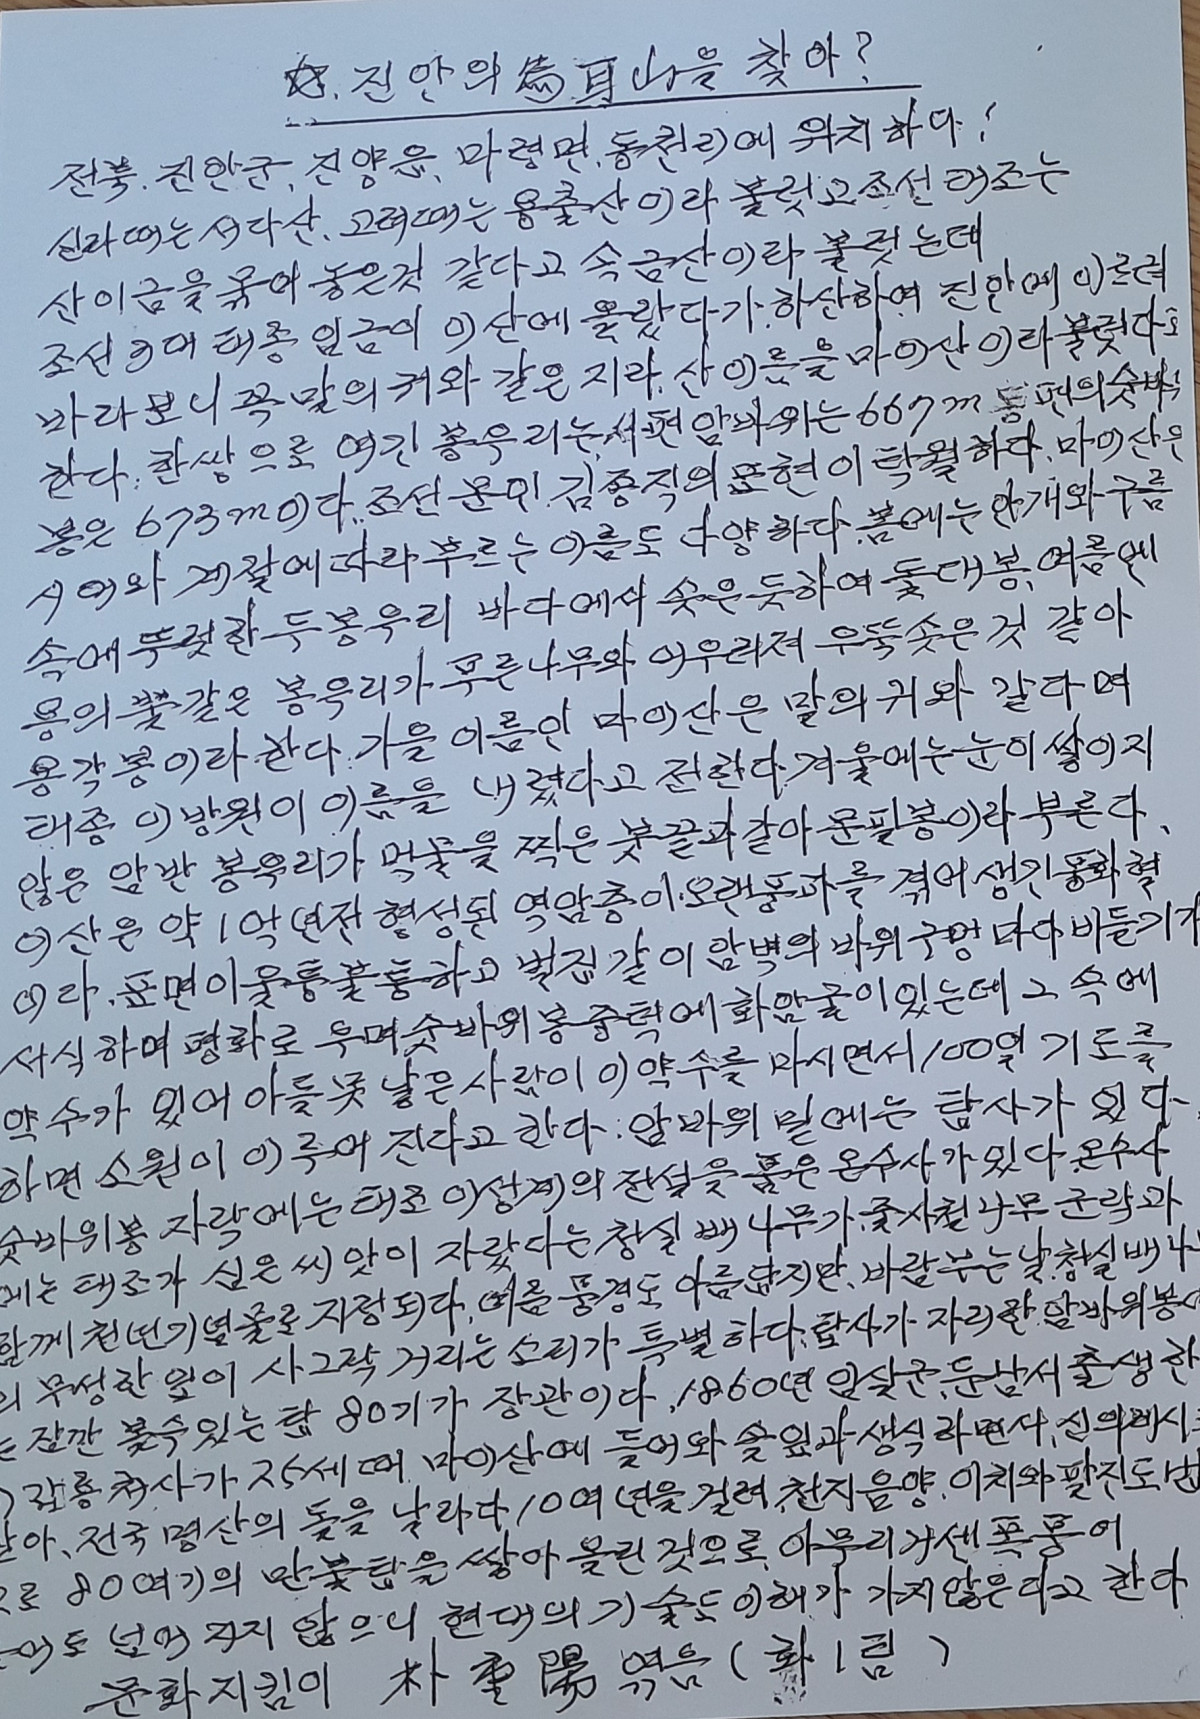 ☆. 진안의 馬耳山을 찾아?
전북. 진안군, 진양읍, 마령면, 동천리에 위치하다!
신라때는 서다산, 고려때는 용출산이라 불렀고 조선 태조는
산이금을 묶어 놓은것 같다고 속금산이라 불렀는데
조선 3대 태종 임금이 이산에 올랐다가 하산하여 진안에 이르러
바라보니 꼭 말의 귀와 같은 지라, 산이름을 마이산이라 불렀다고
한다. 한쌍으로 여긴 봉우리는, 서편 암바위는 667m 동편의 숫바위
봉은 673m이다. 조선 문인 김종직의 표현이 탁월하다. 마이산은
시여와 계절에 따라 부르는 이름도 다양하다. 봄에는 안개와 구름
속에 뚜렷한 두봉우리 바다에서 솟은 듯하여 돛대봉, 여름엔
용의 뿔같은 봉우리가 푸른나무와 어우러져 우뚝솟은 것 같아
용각봉이라 한다. 가을 이름인 마이산은 말의 귀와 같다며
태종 이방원이 이름을 내렸다고 전한다. 겨울에는 눈이 쌓이지
않은 암반 봉우리가 먹물을 찍은 붓끝과 같아 문필봉이라 부른다.
이산은 약 1억년전 형성된 역암층이 오랜풍파를 겪어 생긴 동화혈
이라. 표면이 울퉁불퉁하고 벌집같이 암벽의 바위 구멍 마다 비들기가
서식하며 평화로 우며 숫바위봉 중턱에 화암굴이 있는데 그 속에
약수가 있어 아들못 낳은 사람이 이 약수를 마시면서 100일 기도를
하면 소원이 이루어 진다고 한다: 암바위 밑에는 탑사가 있다.
숫바위봉 자락에는 태조 이성계의 전설을 품은 은수사가 있다 은수사
에는 태조가 심은 씨앗이 자랐다는 청실 배나무가, 줄사철나무 군락과
함께 천년기념물로 지정되다. 여름 풍경도 아름답지만, 바람부는날 청실배나
의 무성한 잎이 사그락 거리는 소리가 특별하다. 탑사가 자리한 암바위봉
는 잠깐 볼수있는 탑 80기가 장관이다. 1860년 임실군, 둔남서 출생한
갑룡처사가 25세때 마이산에 들어와 솔잎과 생식하면서, 신의 계시
받아, 전국 명산의 돌을 날라다 10여 년을 걸려 천지음양, 이치와 팔진도법
으로 80여기의 만불탑을 쌓아 올린것으로, 아무리 거센 폭풍에
도 넘어 지지 않으니 현대의 기술도 이해가 가지않은다고 한다
문화지킴이 朴重陽 엮음 (화1림)